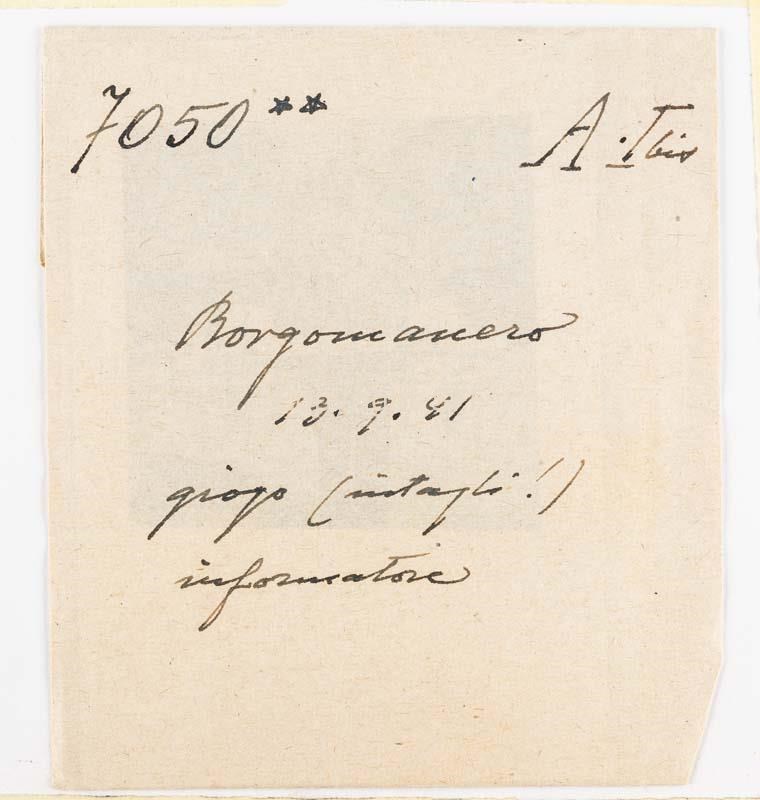 7050** A.I bis
Borgomanero
13.9.41
giogo (intagli!)
informatore